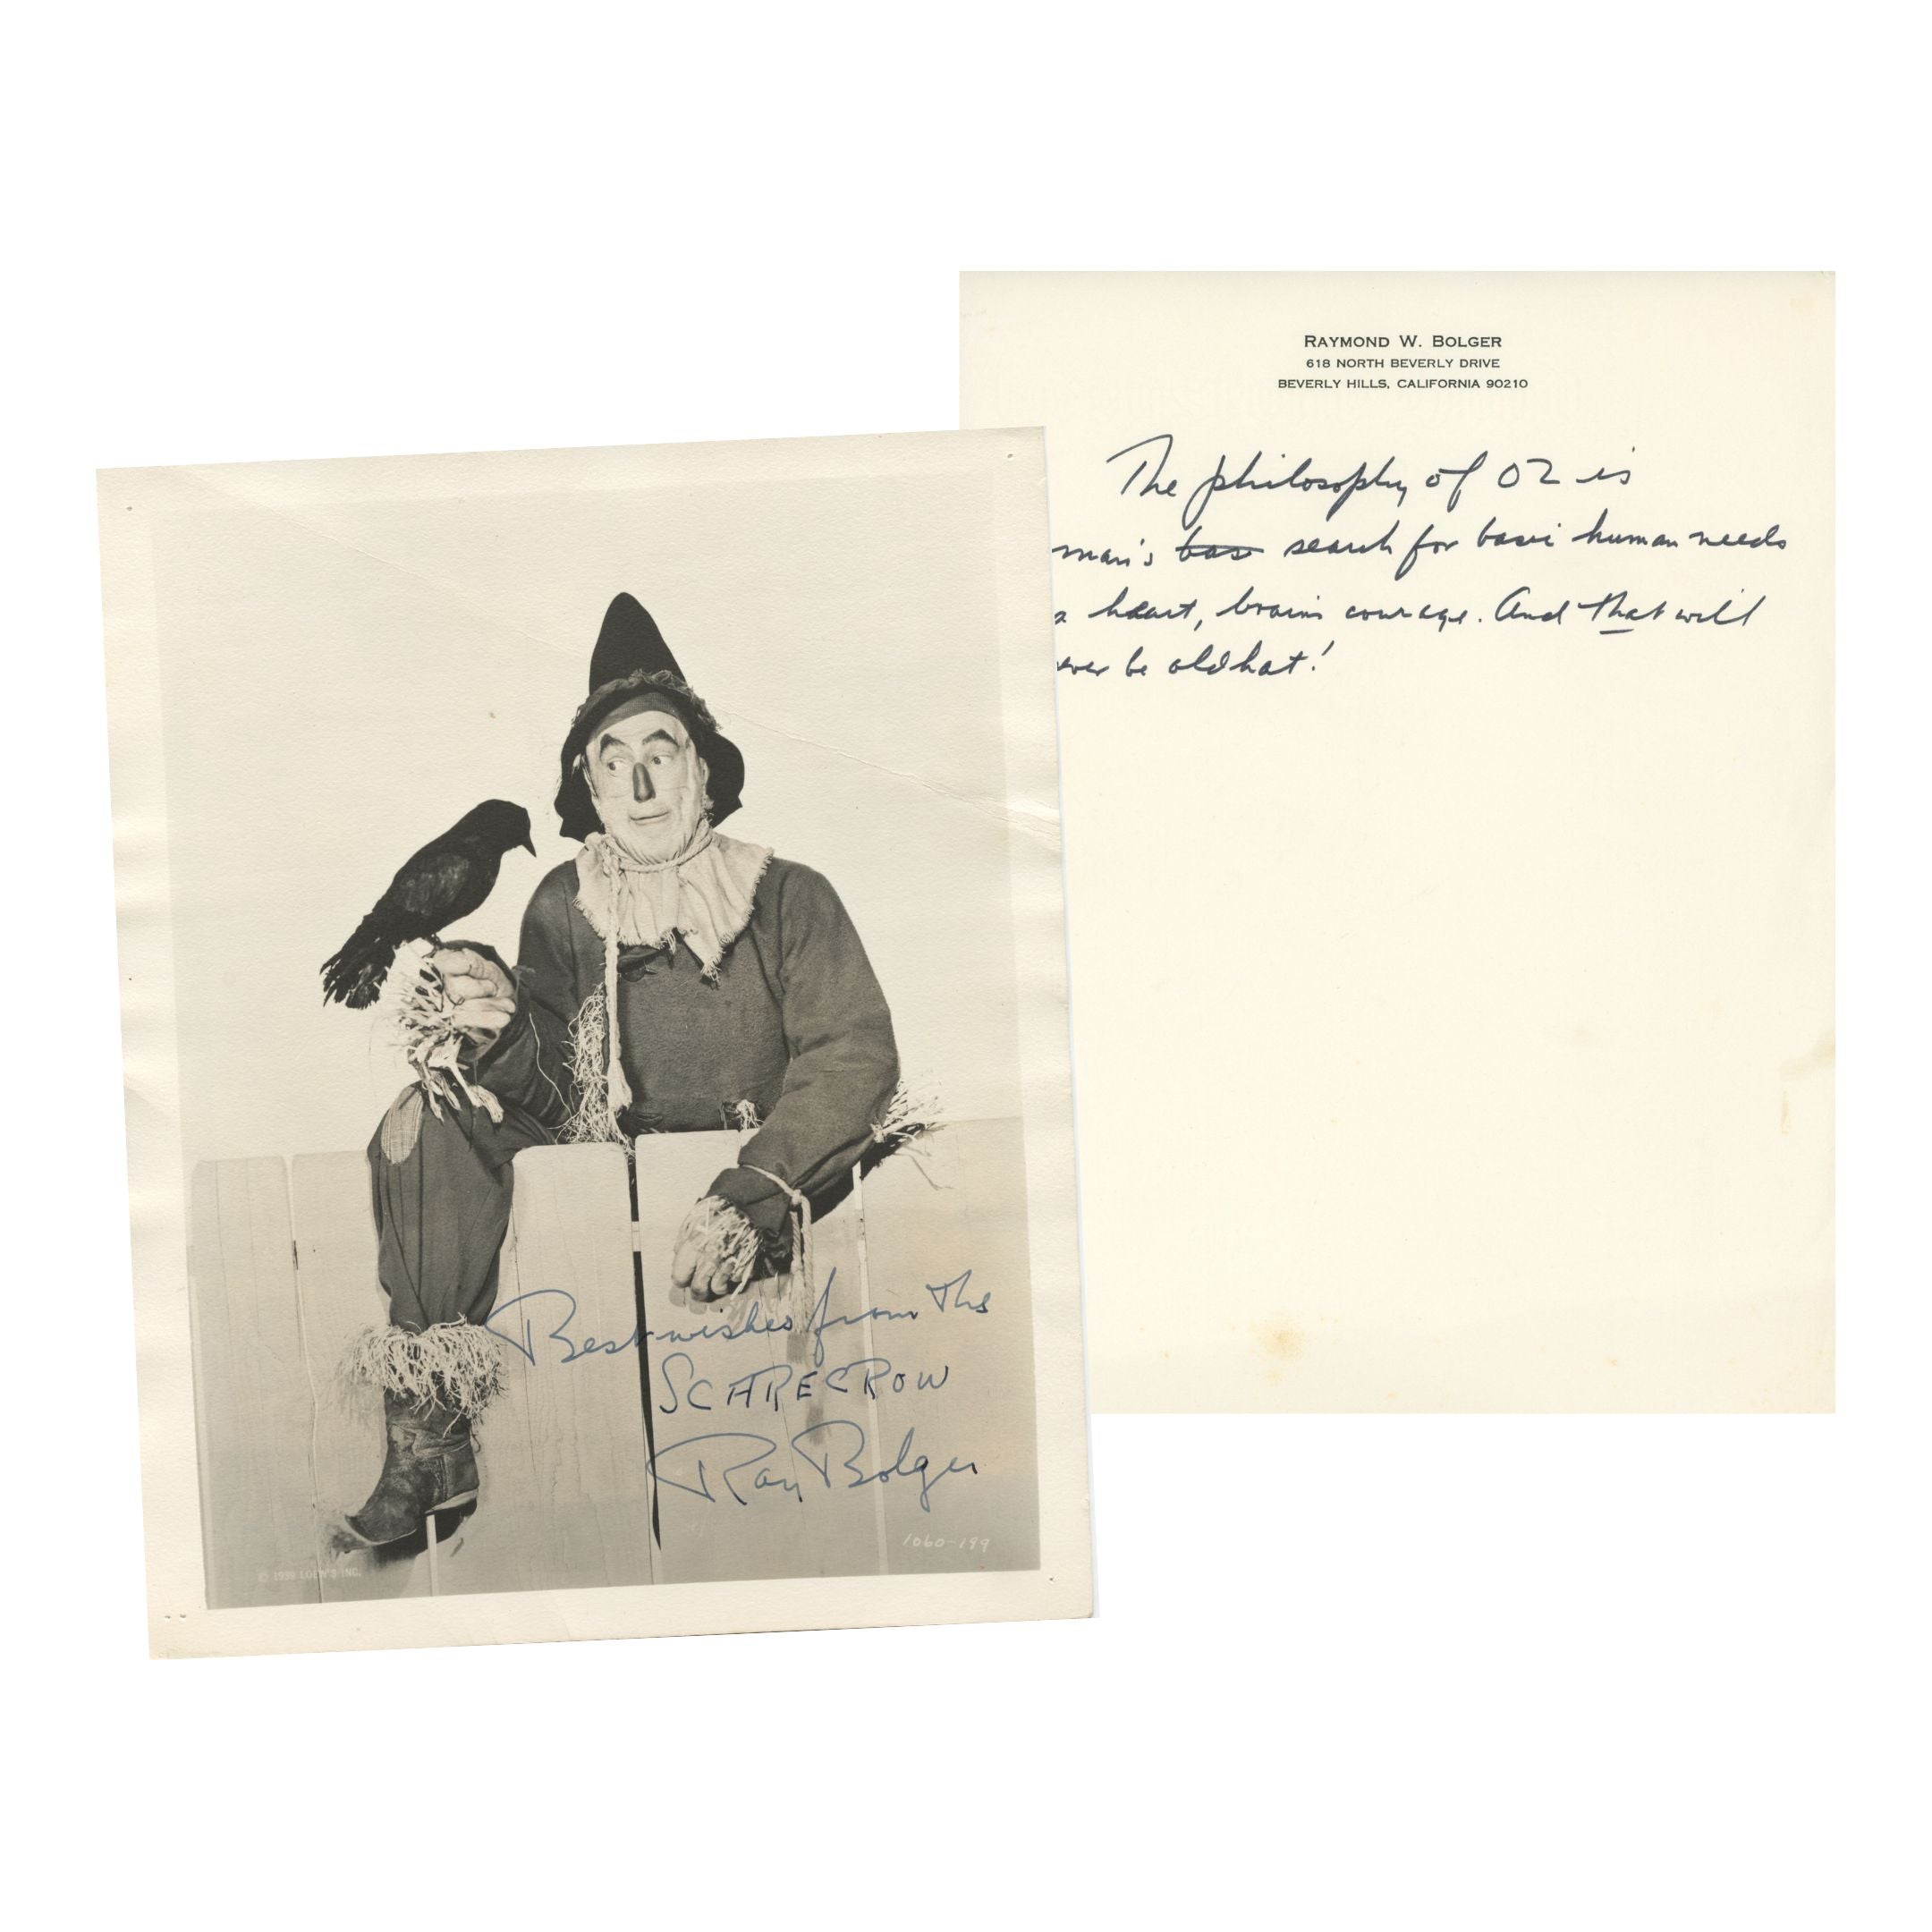 RAYMOND W. BOLGER
618 NORTH BEVERLY DRIVE
BEVERLY HILLS, CALIFORNIA 90210
The philosophy of OZ is
man's bas search for basic human needs
heart, brains courage. And that will
be old hat!
Best wishes from the
SCARECROW
Ray Bolger
1060-199
© 1939 LOEW'S INC.